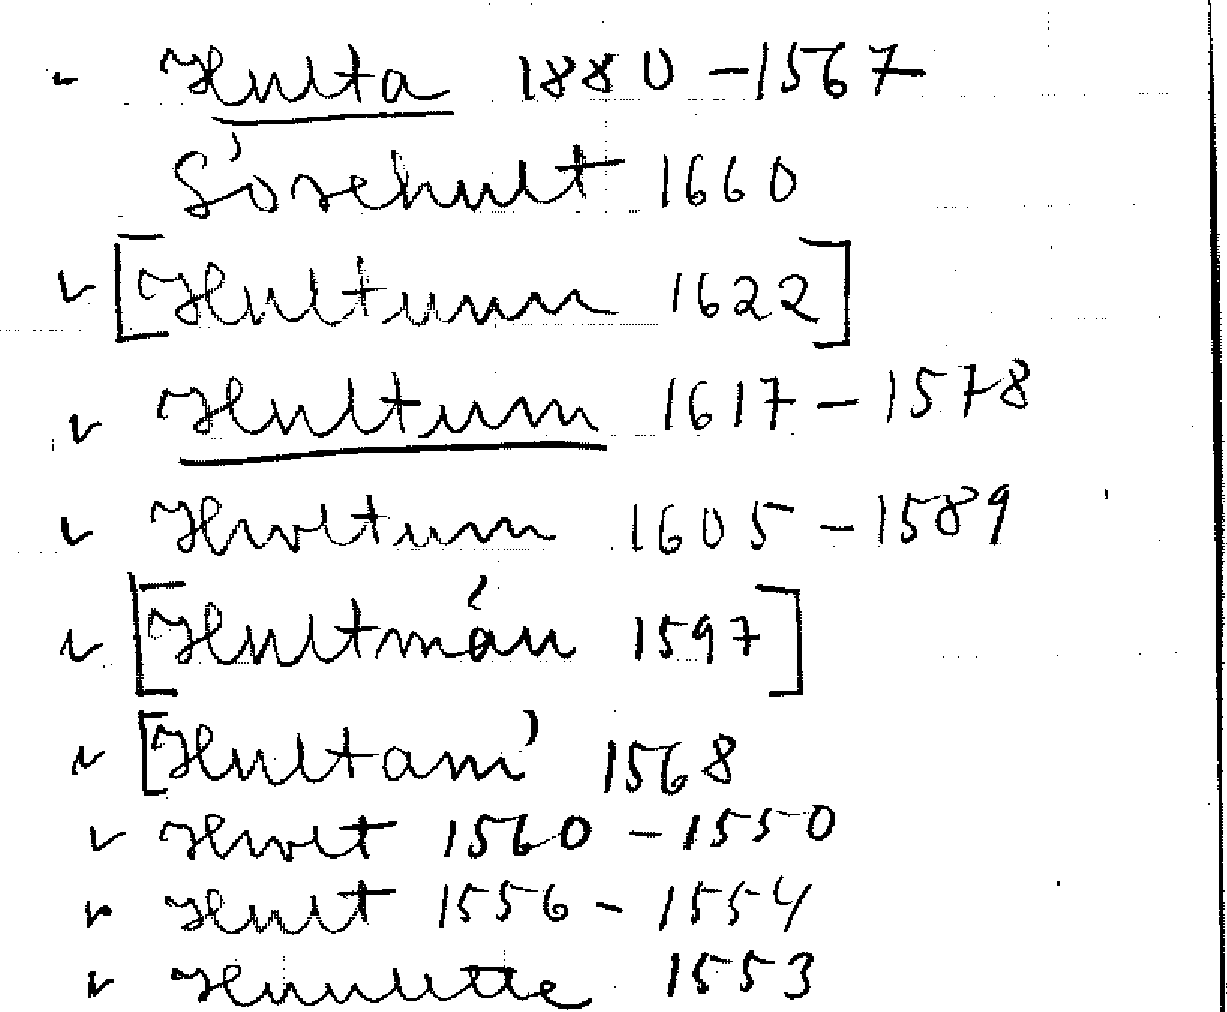 Hulta 1880 - 1567
Sörehult 1660
[Hultunn 1622]
Hultum 1617 - 1578
Hwltum 1605 - 1589
[Hultmán 1597]
[Hultam' 1568
Hwlt 1560 - 1550
Hult 1556 - 1554
1553